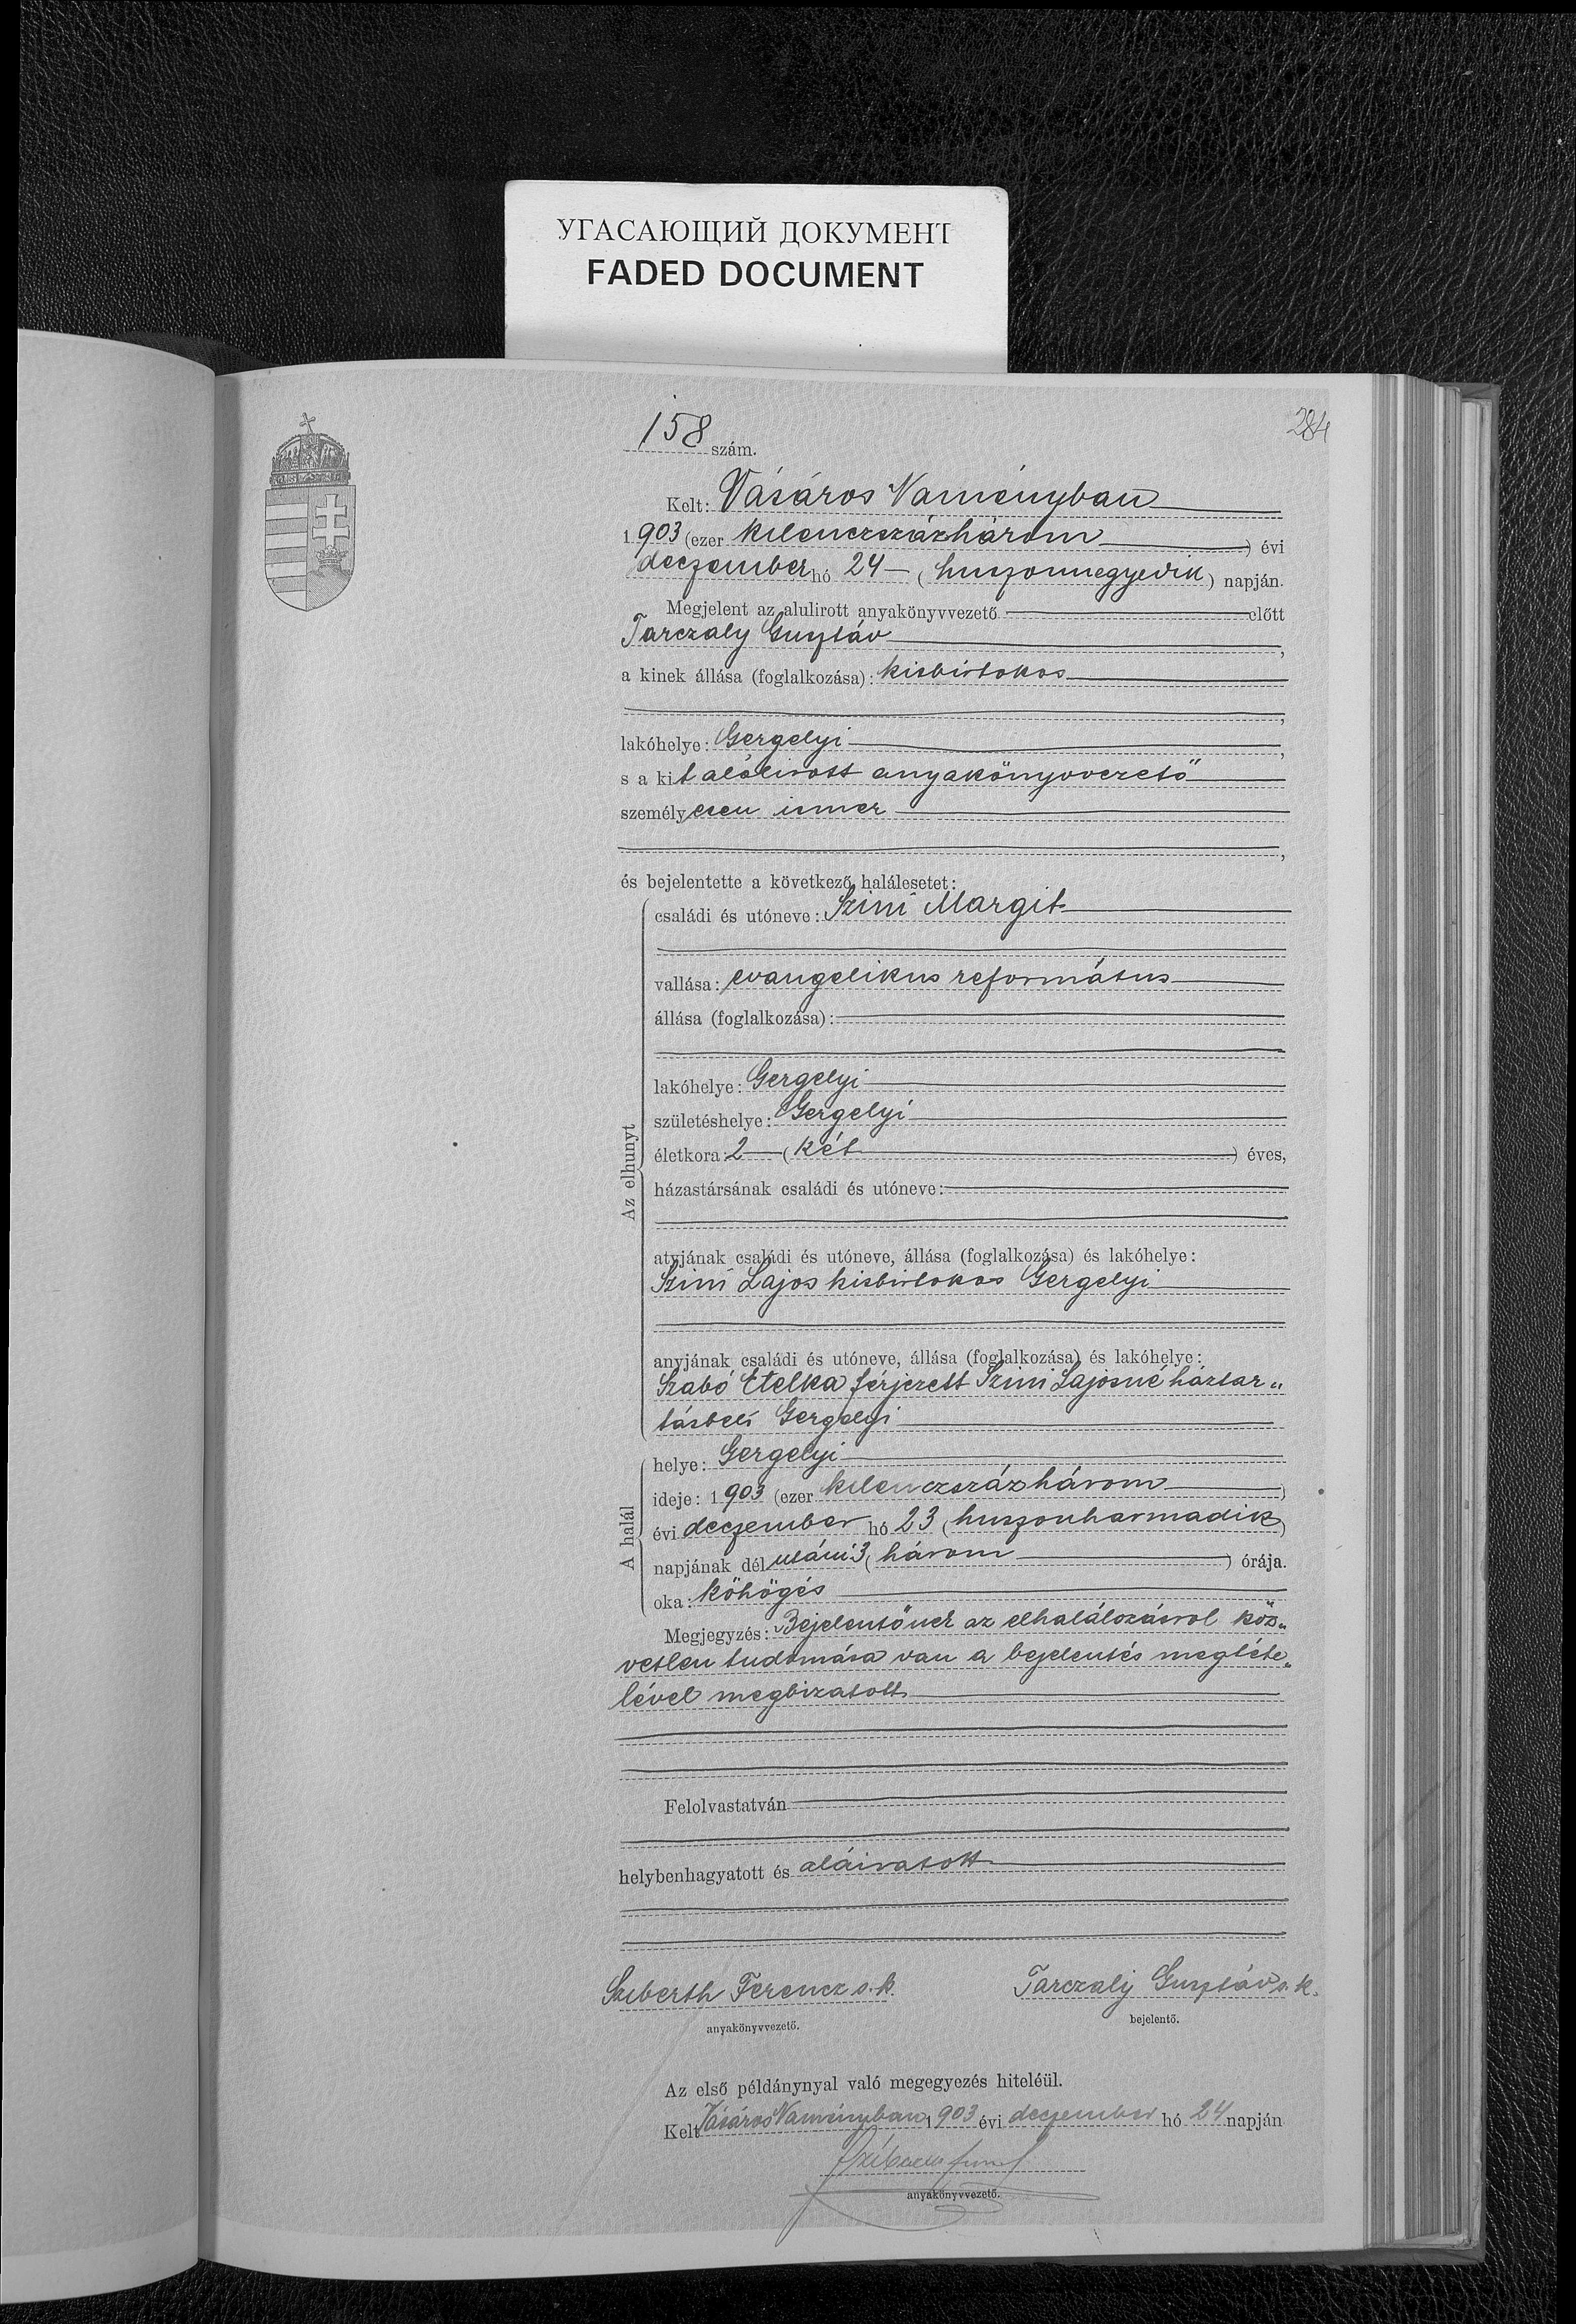 УГАСАЮЩИЙ ДОКУМЕНТ
FADED DOCUMENT
284
158 szám.
Kelt: Vásáros Naményban
1903 (ezer kilenczszázhárom ) évi
deczember hó 24 – ( huszonnegyedik ) napján.
Megjelent az alulirott anyakönyvvezető előtt
Tarczaly Gusztáv ,
a kinek állása (foglalkozása): kisbirtokos
,
lakóhelye: Gergelyi ,
s a kit alólirott anyakönyvvezető
személyesen ismer
,
és bejelentette a következő halálesetet:
Az elhunyt
családi és utóneve: Szini Margit
vallása: evangelikus református
állása (foglalkozása):
lakóhelye: Gergelyi
születéshelye: Gergelyi
életkora: 2 – ( két ) éves,
házastársának családi és utóneve:
atyjának családi és utóneve, állása (foglalkozása) és lakóhelye:
Szini Lajos kisbirtokos Gergelyi
anyjának családi és utóneve, állása (foglalkozása) és lakóhelye:
Szabó Etelka férjezett Szini Lajosné háztar„
tásbeli Gergelyi
A halál
helye: Gergelyi
ideje: 1903 (ezer kilenczszázhárom )
évi deczember hó 23 ( huszonharmadik )
napjának dél utáni 3 ( három ) órája.
oka: köhögés
Megjegyzés: Bejelentőnek az elhalálozásról köz„
vetlen tudomása van a bejelentés megtéte„
lével megbizatott
Felolvastatván
helybenhagyatott és aláiratott
Sziberth Ferencz s. k. Tarczaly Gusztáv s. k.
anyakönyvvezető. bejelentő.
Az első példánynyal való megegyezés hiteléül.
Kelt Vásáros Naményban 1903 évi deczember hó 24 napján
anyakönyvvezető.